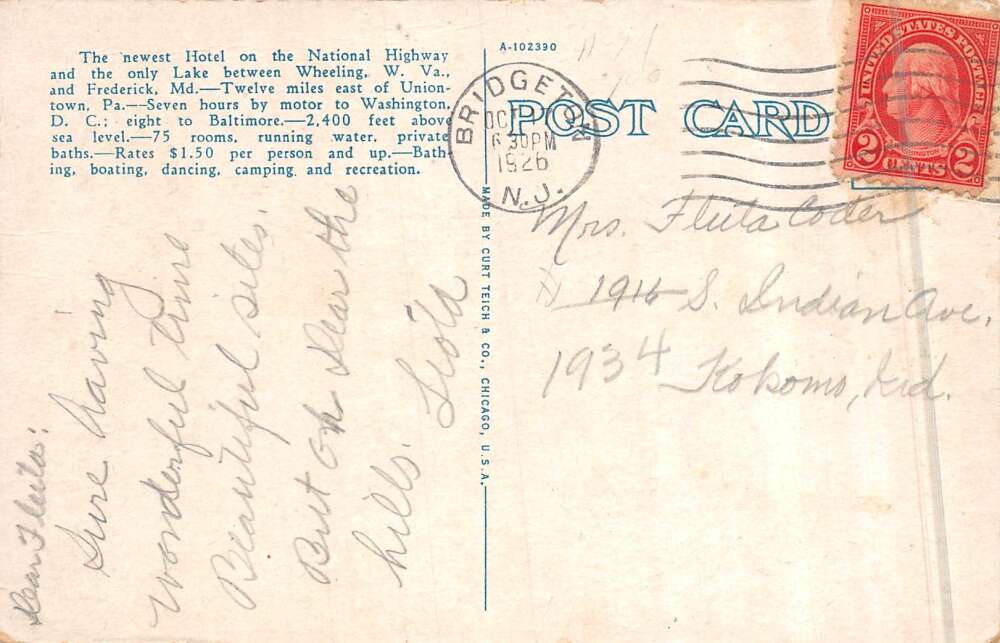 The newest Hotel on the National Highway
and the only Lake between Wheeling, W. Va.,
and Frederick, Md.—Twelve miles east of Union-
town, Pa.—Seven hours by motor to Washington,
D. C.; eight to Baltimore.—2,400 feet above
sea level.—75 rooms, running water, private
baths.—Rates $1.50 per person and up.—Bath-
ing, boating, dancing, camping and recreation.
Dear Fleita:
Sure having
wonderful time
Beautiful sites.
But oh dear the
hills.
MADE BY CURT TEICH & CO., CHICAGO, U.S.A.
A-102390
POST CARD
BRIDGETON
OCT 1
6 30PM
1926
N.J.
UNITED STATES POSTAGE
WASHINGTON
2 CENTS 2
Mrs. Fleita Coder
1916 S. Indian Ave.
1934 Kokomo, Ind.